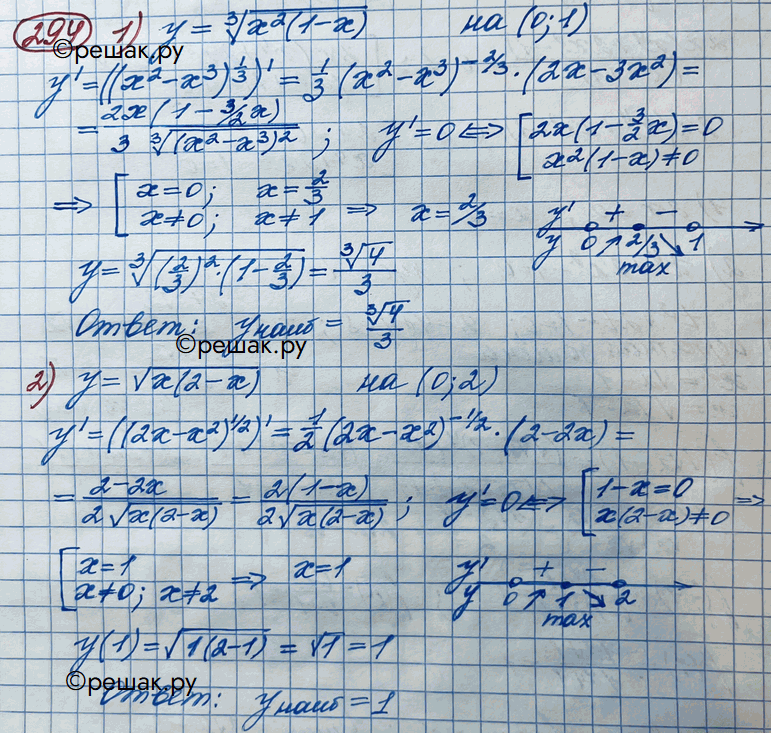 294 1) y = ∛(x²(1-x)) на (0;1)
©решак.ру
y' = ((x²-x³)^(1/3))' = 1/3 (x²-x³)^(-2/3) · (2x-3x²) =
= 2x(1-3/2x) / (3 ∛((x²-x³)²)) ; y'=0 <=> [ 2x(1-3/2x)=0
x²(1-x)≠0
=> [ x=0; x=2/3
x≠0; x≠1 => x=2/3
y' + -
y 0 ↗ 2/3 ↘ 1
max
y = ∛((2/3)²·(1-2/3)) = ∛4/3
Ответ: yнаиб = ∛4/3
©решак.ру
2) y = √(x(2-x)) на (0;2)
y' = ((2x-x²)^(1/2))' = 1/2 (2x-x²)^(-1/2) · (2-2x) =
= (2-2x)/(2√(x(2-x))) = 2(1-x)/(2√(x(2-x))) ; y'=0 <=> [ 1-x=0
x(2-x)≠0 =>
[ x=1
x≠0; x≠2 => x=1
y' + -
y 0 ↗ 1 ↘ 2
max
y(1) = √(1(2-1)) = √1 = 1
©решак.ру
Ответ: yнаиб = 1